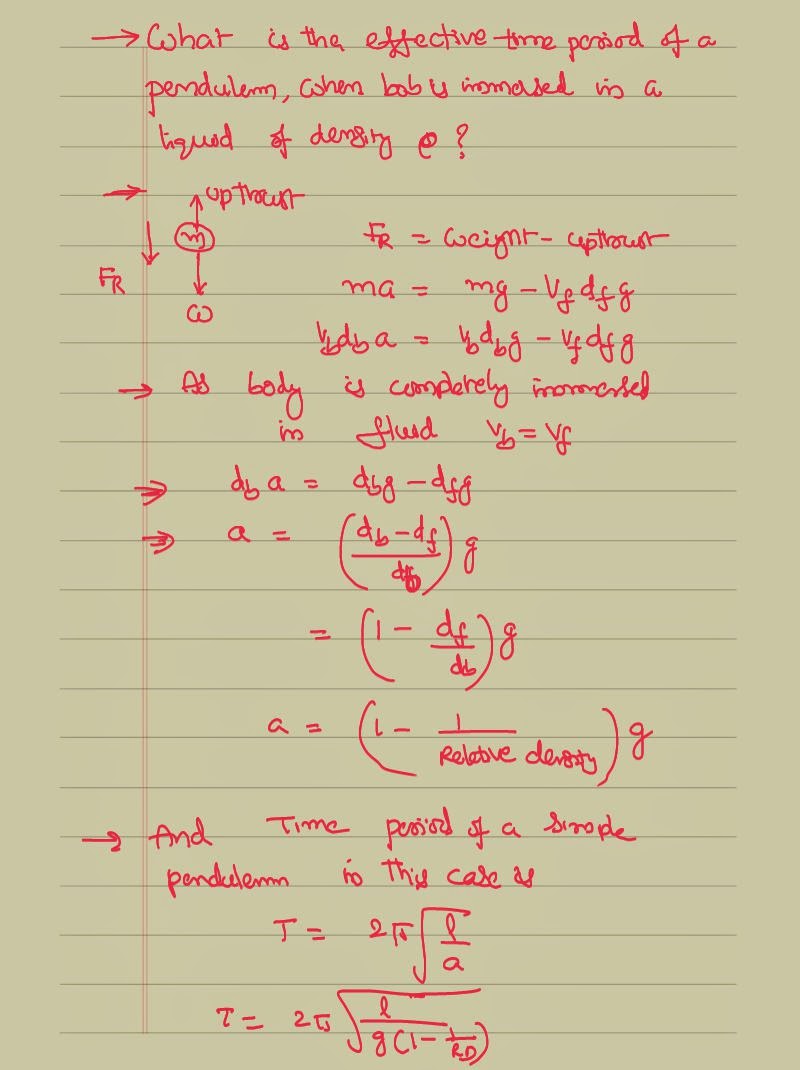 → What is the effective time period of a
pendulum, when bob is immersed in a
liquid of density ρ?
→ upthrust
m
F_R
ω
F_R = weight - upthrust
ma = mg - V_f d_f g
V_b d_b a = V_b d_b g - V_f d_f g
→ As body is completely immersed
in fluid V_b = V_f
⇒ d_b a = d_b g - d_f g
⇒ a = ((d_b - d_f)/d_b) g
= (1 - d_f/d_b) g
a = (1 - 1/Relative density) g
→ And Time period of a simple
pendulum in this case is
T = 2π √(l/a)
T = 2π √(l/(g(1 - 1/RD)))